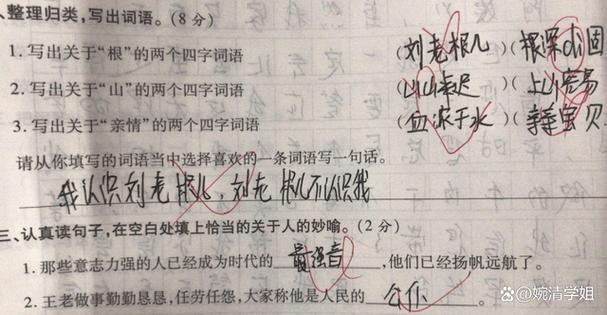 、整理归类,写出词语。(8分)
1.写出关于“根”的两个四字词语 (刘老根儿)(根深 固
2.写出关于“山”的两个四字词语 (山山 迟 (上山容易
3.写出关于“亲情”的两个四字词语 (血浓于水)(亲亲宝贝
请从你填写的词语当中选择喜欢的一条词语写一句话。
我认识刘老根儿,刘老根儿不认识我
三、认真读句子,在空白处填上恰当的关于人的妙喻。(2分)
1.那些意志力强的人已经成为时代的 最强音 ,他们已经扬帆远航了。
2.王老做事勤勤恳恳,任劳任怨,大家称他是人民的 公仆 。
@婉清学姐